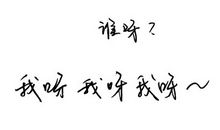 谁呀？
我呀 我呀 我呀～